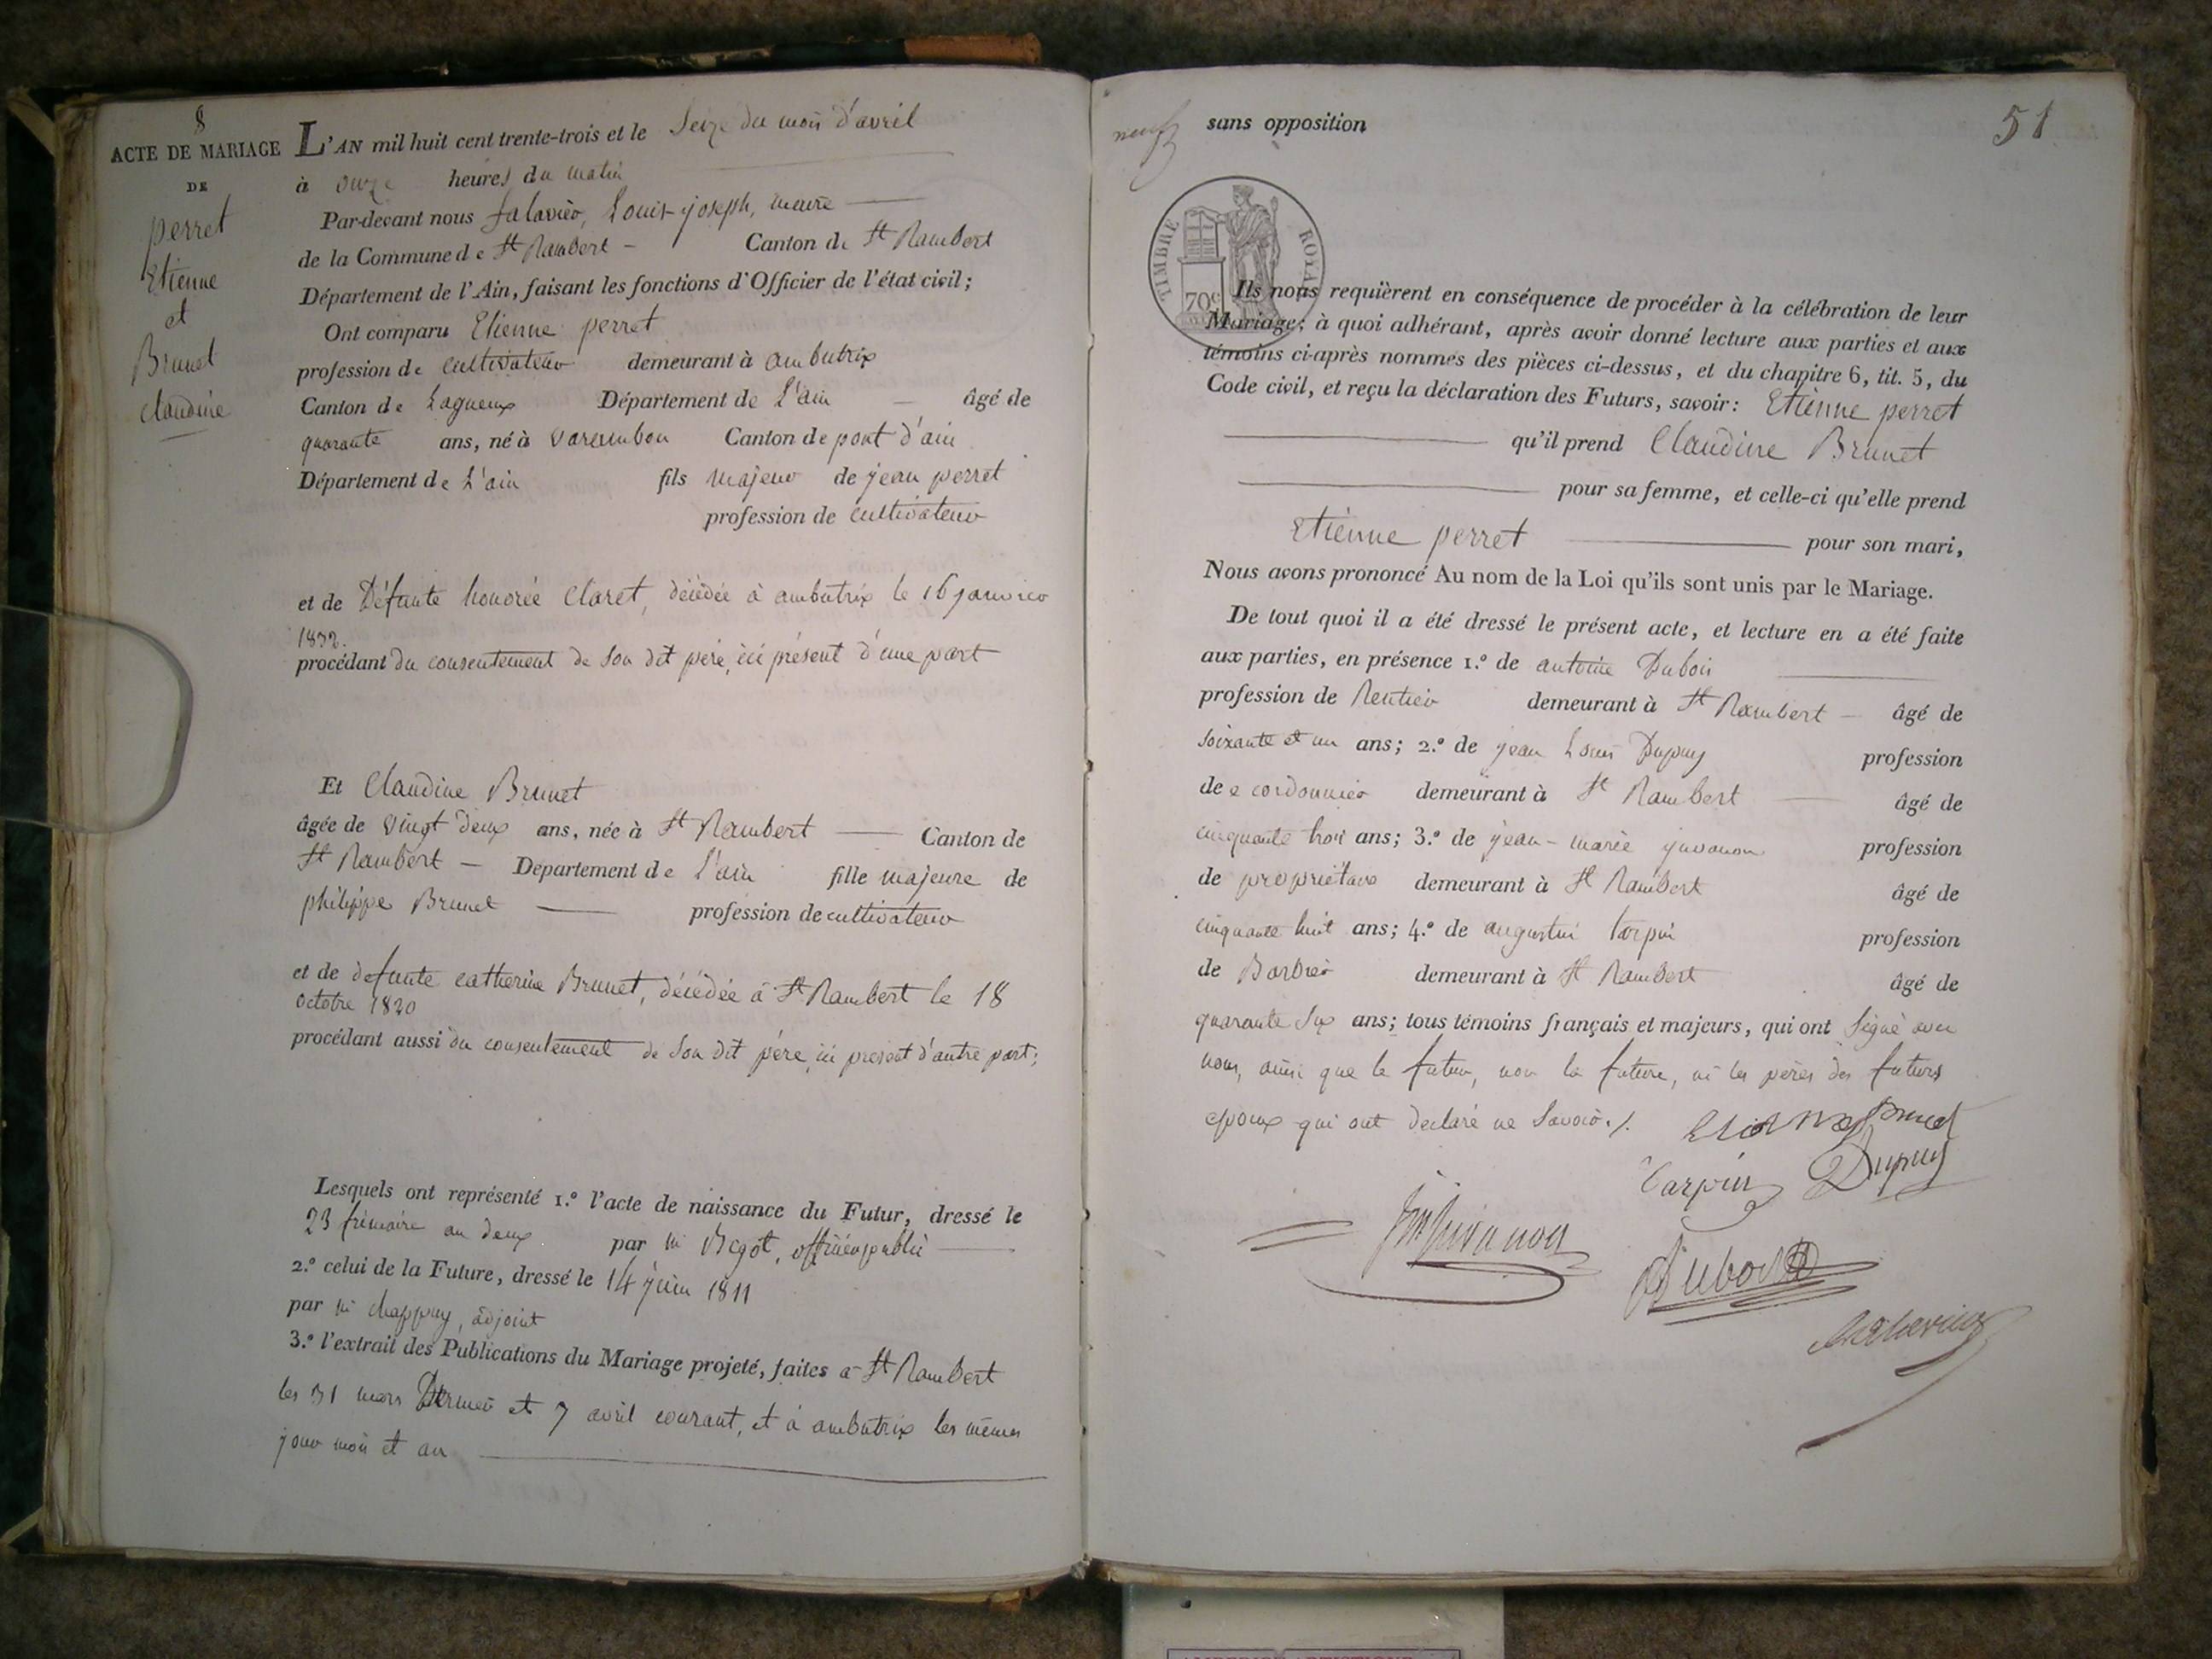 8
ACTE DE MARIAGE
DE
perret
Etienne
et
Brunet
claudine
L'AN mil huit cent trente-trois et le Seize du mois d'avril
à onze heures du matin
Par-devant nous Louis joseph, maire
de la Commune de St Rambert Canton de St Rambert
Département de l'Ain, faisant les fonctions d'Officier de l'état civil;
Ont comparu Etienne perret
profession de cultivateur demeurant à ambutrix
Canton de Lagneux Département de L'ain âgé de
quarante ans, né à varambon Canton de pont d'ain
Département de L'ain fils majeur de jean perret
profession de cultivateur
et de Défunte honorée Claret, décédée à ambutrix le 16 janvier
1832.
procédant du consentement de Son dit père, ici présent d'une part
Et Claudine Brunet
âgée de vingt deux ans, née à St Rambert Canton de
St Rambert Département de L'ain fille majeure de
philippe Brunet profession de cultivateur
et de defunte catherine Brunet, décédée à St Rambert le 18
octobre 1820
procédant aussi du consentement de Son dit père, ici présent d'autre part;
Lesquels ont représenté 1.º l'acte de naissance du Futur, dressé le
23 frimaire an deux par Mr officier public
2.º celui de la Future, dressé le 14 juin 1811
par Mr chappuy, adjoint
3.º l'extrait des Publications du Mariage projeté, faites à St Rambert
les 31 mars Dernier et 7 avril courant, et à ambutrix les mêmes
jour mois et an
neuf
sans opposition
51
TIMBRE ROYAL
70c
Ils nous requièrent en conséquence de procéder à la célébration de leur
Mariage; à quoi adhérant, après avoir donné lecture aux parties et aux
témoins ci-après nommés des pièces ci-dessus, et du chapitre 6, tit. 5, du
Code civil, et reçu la déclaration des Futurs, savoir: Etienne perret
qu'il prend Claudine Brunet
pour sa femme, et celle-ci qu'elle prend
Etienne perret pour son mari,
Nous avons prononcé Au nom de la Loi qu'ils sont unis par le Mariage.
De tout quoi il a été dressé le présent acte, et lecture en a été faite
aux parties, en présence 1.º de antoine Dubois
profession de Rentier demeurant à St Rambert âgé de
soixante et un ans; 2.º de jean Louis Dupuy profession
de cordonnier demeurant à St Rambert âgé de
cinquante trois ans; 3.º de jean-marie juvanon profession
de propriétaire demeurant à St Rambert âgé de
cinquante huit ans; 4.º de augustin tarpin profession
de Barbier demeurant à St Rambert âgé de
quarante Six ans; tous témoins français et majeurs, qui ont Signé avec
nous, ainsi que le futur, non la future, ni les pères des futurs
epoux qui ont declaré ne Savoir./.
Tarpin Dupuy
Jm Juvanon
Dubois